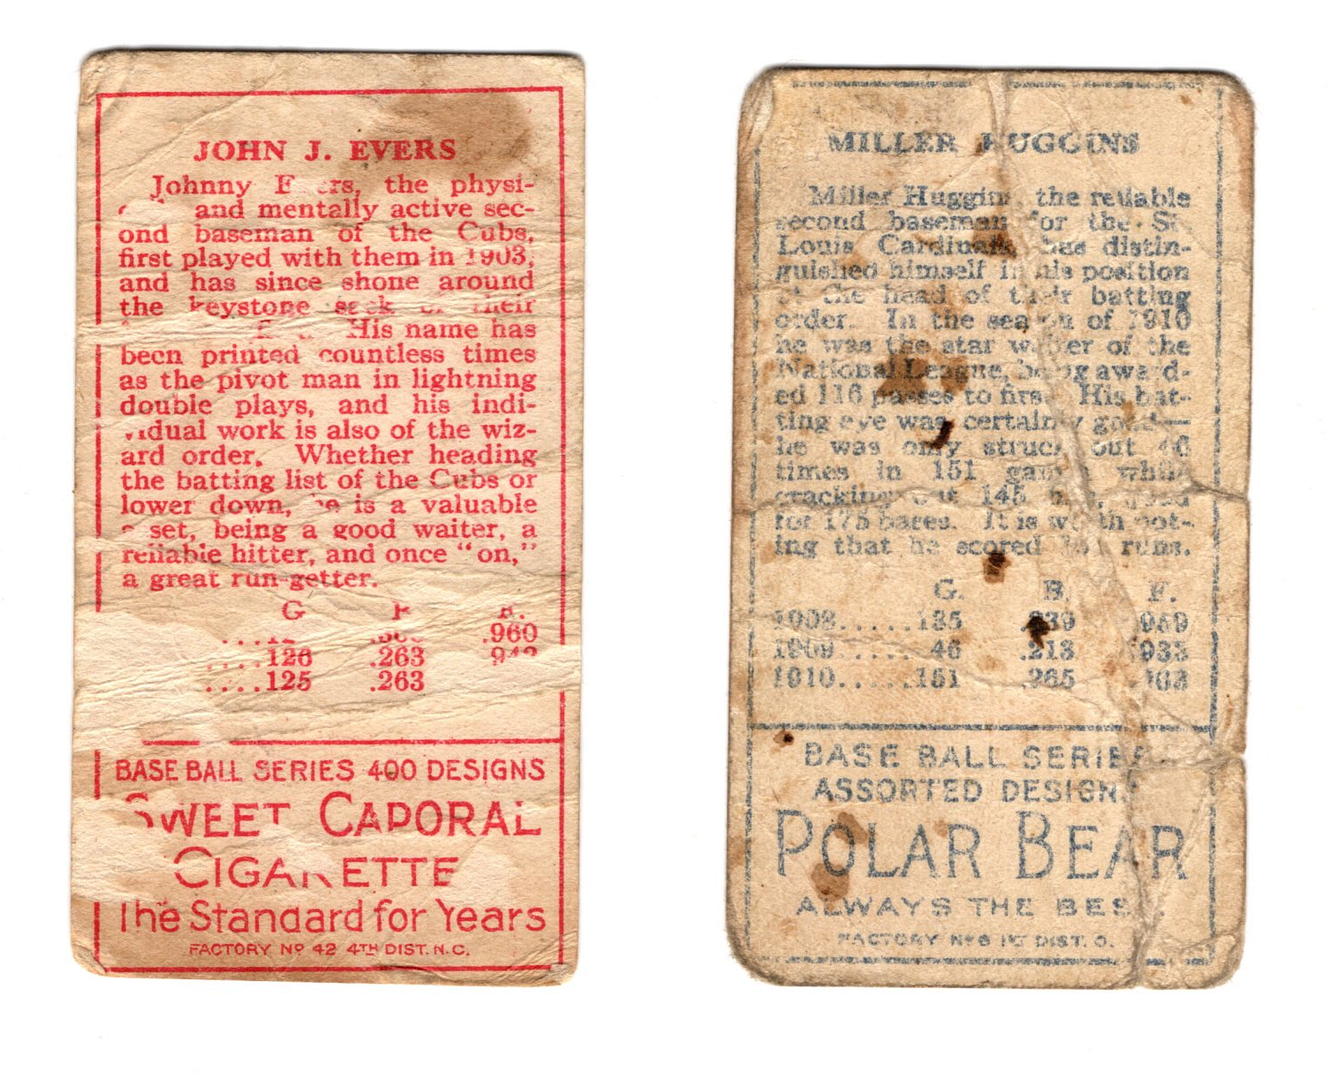 JOHN J. EVERS
Johnny the physi-
and mentally active sec-
ond baseman of the Cubs,
first played with them in 1903,
and has since shone around
the keystone their
His name has
been printed countless times
as the pivot man in lightning
double plays, and his indi-
vidual work is also of the wiz-
ard order. Whether heading
the batting list of the Cubs or
lower down, he is a valuable
set, being a good waiter, a
reliable hitter, and once "on,"
a great run-getter.
G
.960
....126 .263
....125 .263
BASE BALL SERIES 400 DESIGNS
SWEET CAPORAL
CIGARETTE
The Standard for Years
FACTORY Nº 42 4TH DIST. N.C.
MILLER HUGGINS
Miller Huggins, the reliable
second baseman for the St.
Louis Cardinals, has distin-
guished himself in his position
at the head of their batting
order. In the season of 1910
he was the star waiter of the
National League, being award-
ed 116 passes to first. His bat-
ting eye was certainly good—
he was only struck out 46
times in 151 games while
cracking out 145 good
for 175 bases. It is worth not-
ing that he scored runs.
G. B. F.
1908......135 .239 .959
1909......46 .213
1910......151 .265
BASE BALL SERIES
ASSORTED DESIGNS
POLAR BEAR
ALWAYS THE BEST
FACTORY Nº 6 1ST DIST. O.